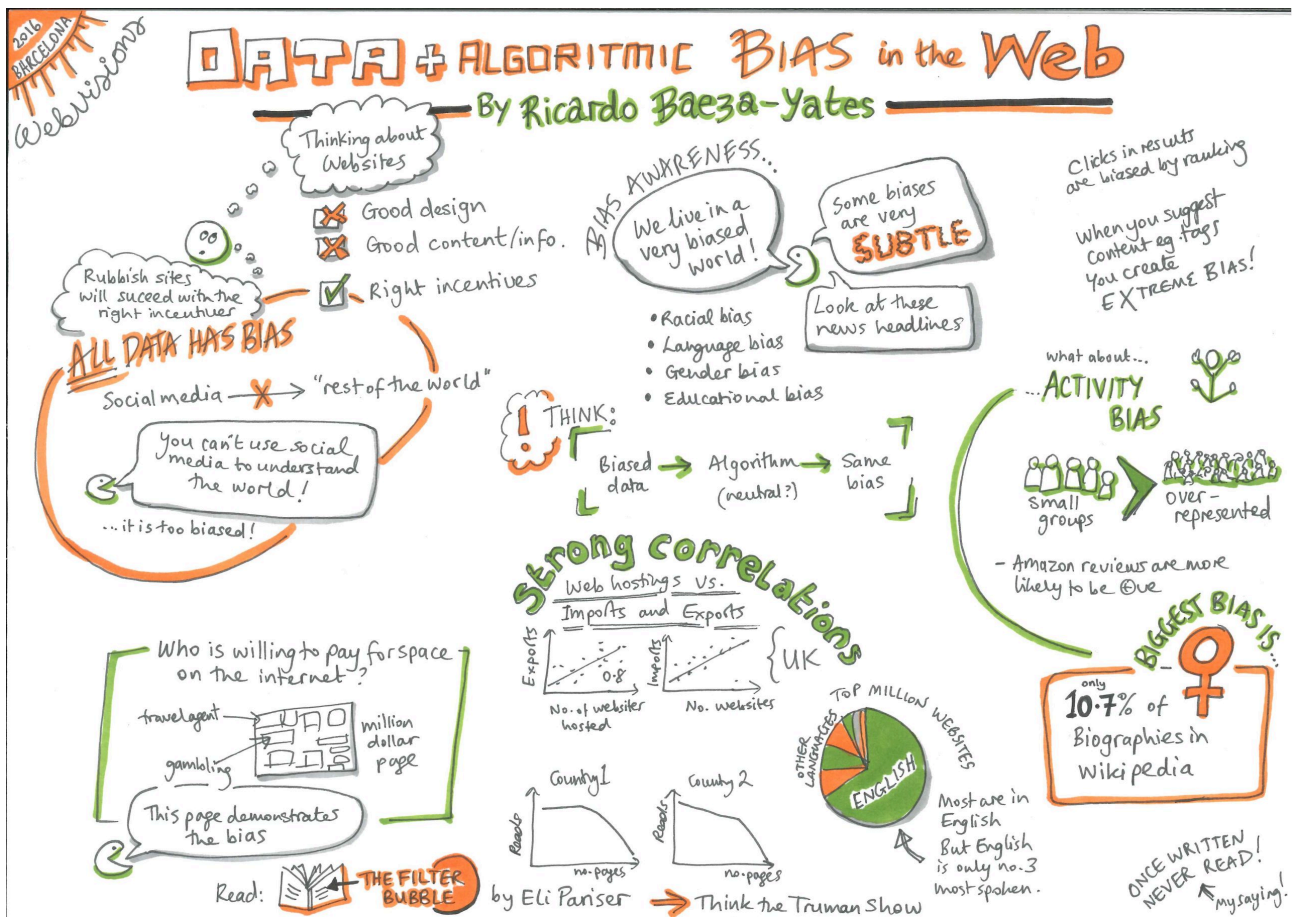 2016
BARCELONA
WebVisions
DATA + ALGORITMIC BIAS in the Web
By Ricardo Baeza-Yates
Thinking about
Websites
Good design
Good content/info.
Right incentives
Rubbish sites
will suceed with the
right incentives
ALL DATA HAS BIAS
Social media X → "rest of the world"
You can't use social
media to understand
the world!
...it is too biased!
BIAS AWARENESS...
We live in a
very biased
world!
Some biases
are very
SUBTLE
Look at these
news headlines
• Racial bias
• Language bias
• Gender bias
• Educational bias
! THINK:
Biased
data
→ Algorithm
(neutral?)
→ Same
bias
Clicks in results
are biased by ranking
When you suggest
content eg. tags
you create
EXTREME BIAS!
what about...
...ACTIVITY
BIAS
small
groups
over-
represented
- Amazon reviews are more
likely to be ⊕ve
BIGGEST BIAS IS...
only
10.7% of
Biographies in
Wikipedia
Strong correlations
Web hostings Vs.
Imports and Exports
Exports
0.8
No. of websites
hosted
Imports
No. websites
{ UK
Who is willing to pay for space
on the internet?
travel agent
gambling
million
dollar
page
This page demonstrates
the bias
Country 1
Reads
no. pages
Country 2
Reads
no. pages
TOP MILLION WEBSITES
OTHER
LANGUAGES
ENGLISH
Most are in
English
But English
is only no.3
most spoken.
Read:
THE FILTER
BUBBLE
by Eli Pariser → Think the Truman Show
ONCE WRITTEN
NEVER READ!
my saying!